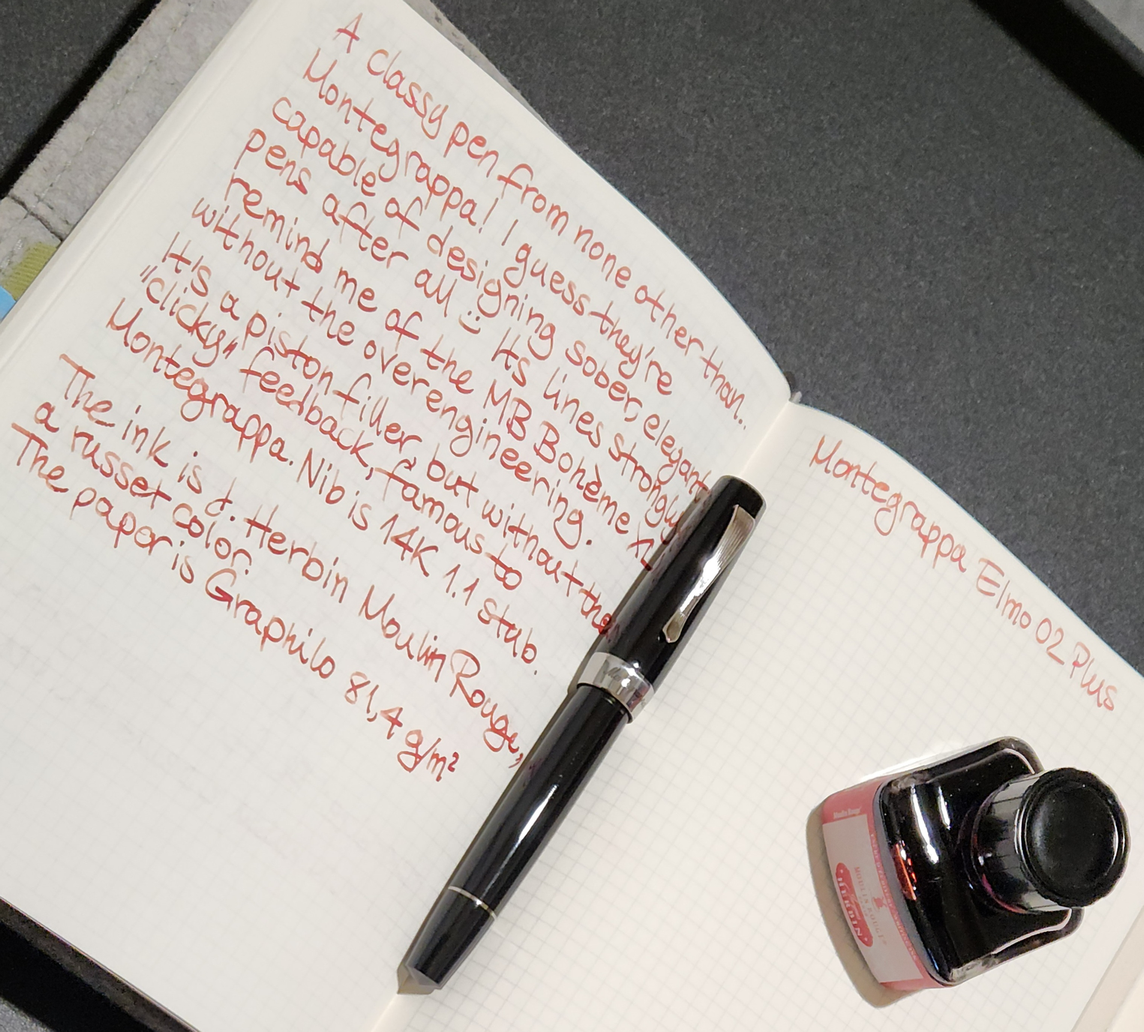 A classy pen from none other than..
Montegrappa! I guess they're
capable of designing sober, elegant
pens after all :) Its lines strongly
remind me of the MB Bohème XL
without the overengineering.
It's a piston filler, but without the
"clicky" feedback, famous to
Montegrappa. Nib is 14K 1.1 stub.
The ink is J. Herbin Moulin Rouge,
a russet color.
The paper is Graphilo 81,4 g/m²
Montegrappa Elmo 02 Plus
MOULIN ROUGE
HERBIN